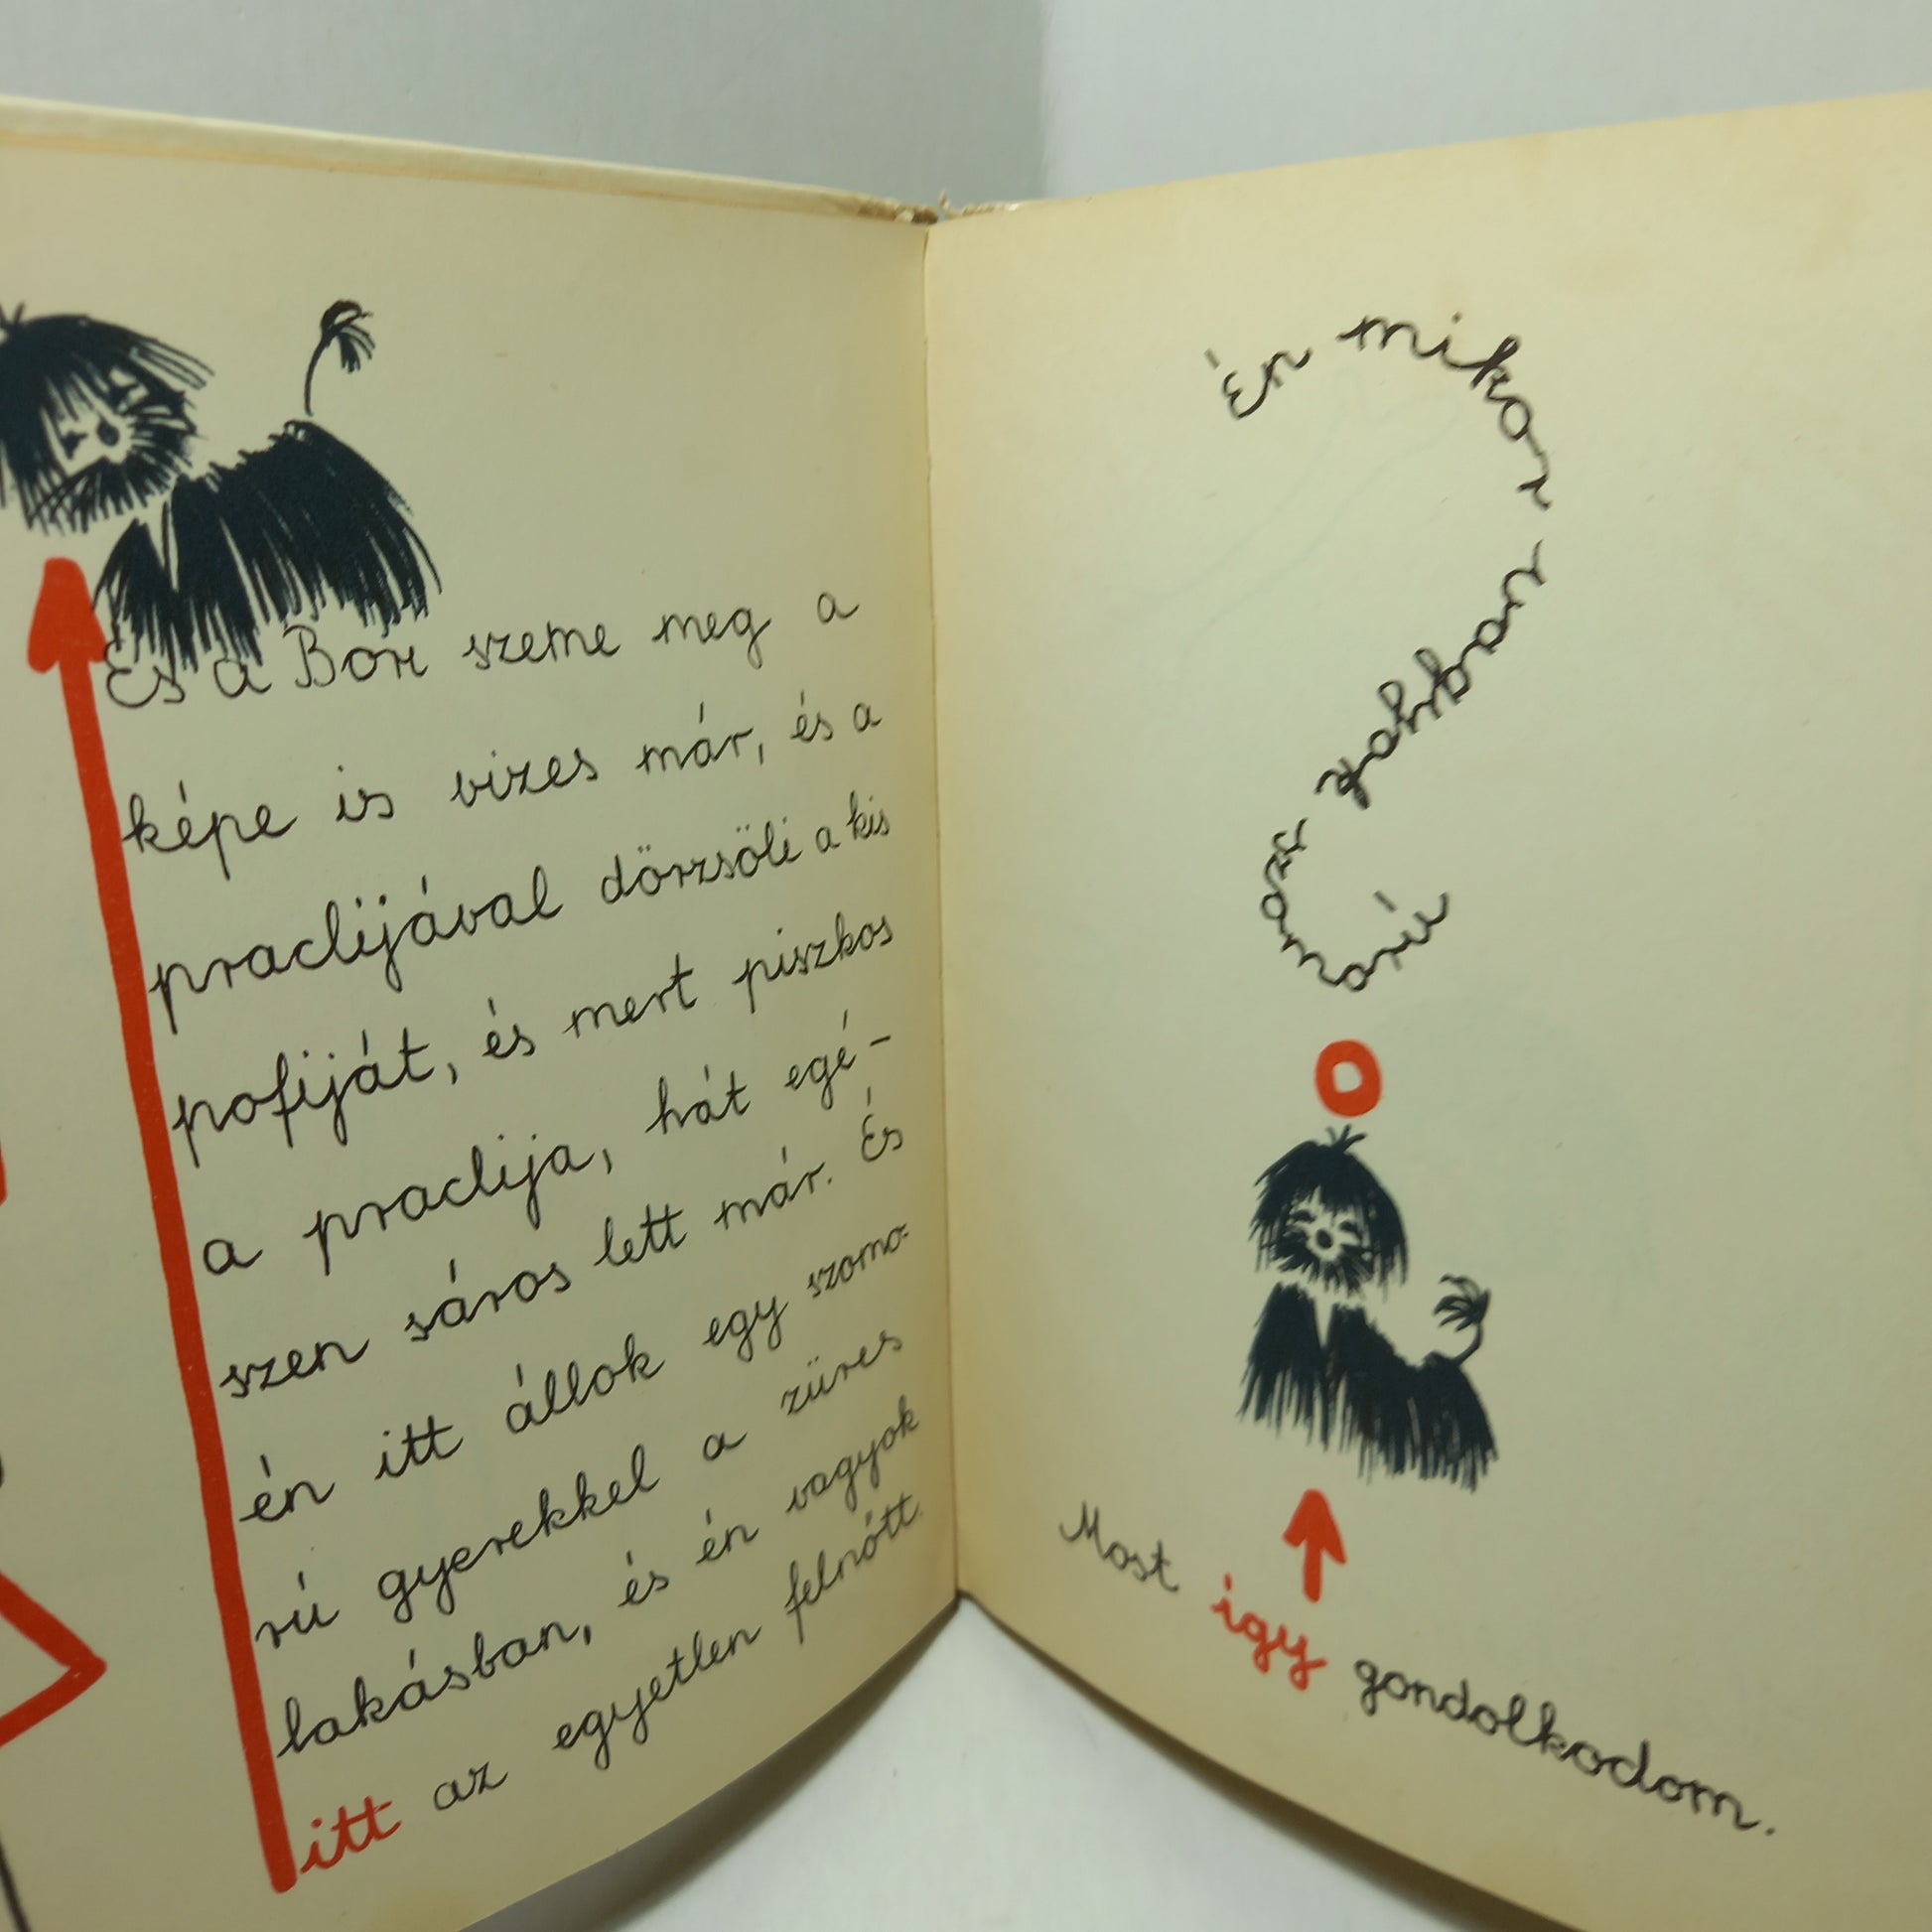 És a Bori szeme meg a
képe is vizes már, és a
praclijával dörzsöli a kis
pofiját, és mert piszkos
a praclija, hát egé-
szen sáros lett már. És
én itt állok egy szomo-
rú gyerekkel a züres
lakásban, és én vagyok
itt az egyetlen felnőtt.
Én mikor szomorú
Most így gondolkodom.